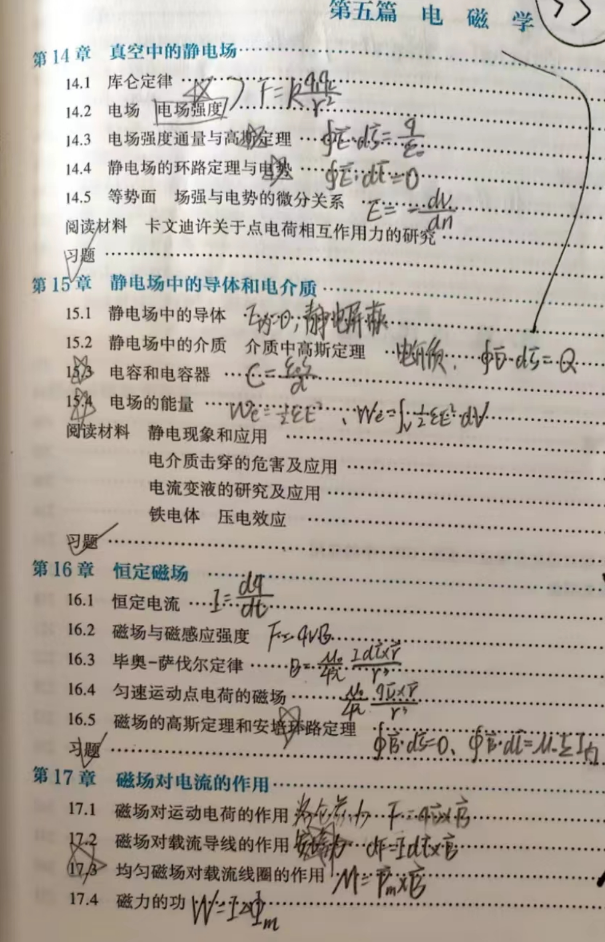 第五篇 电 磁 学
第14章 真空中的静电场
14.1 库仑定律 F=k q₁q₂/r²
14.2 电场 电场强度
14.3 电场强度通量与高斯定理 ∮E⃗·dS⃗=q/ε₀
14.4 静电场的环路定理与电势 ∮E⃗·dl⃗=0
14.5 等势面 场强与电势的微分关系 E=-dv/dn
阅读材料 卡文迪许关于点电荷相互作用力的研究
习题
第15章 静电场中的导体和电介质
15.1 静电场中的导体 E内=0,静电屏蔽
15.2 静电场中的介质 介质中高斯定理 ∮D⃗·dS⃗=Q
15.3 电容和电容器
15.4 电场的能量 We=½εE²、We=∫v½εE²·dV
阅读材料 静电现象和应用
电介质击穿的危害及应用
电流变液的研究及应用
铁电体 压电效应
习题
第16章 恒定磁场
16.1 恒定电流 I=dq/dt
16.2 磁场与磁感应强度 F=qvB
16.3 毕奥-萨伐尔定律 B=μ₀/4π Idl⃗×r⃗/r³
16.4 匀速运动点电荷的磁场 μ₀/4π qv⃗×r⃗/r³
16.5 磁场的高斯定理和安培环路定理 ∮B⃗·dS⃗=0、∮B⃗·dl⃗=μ₀ΣI内
习题
第17章 磁场对电流的作用
17.1 磁场对运动电荷的作用 F=qv⃗×B⃗
17.2 磁场对载流导线的作用 安培力 dF=Idl⃗×B⃗
17.3 均匀磁场对载流线圈的作用 M=P⃗m×B⃗
17.4 磁力的功 W=IΔΦm